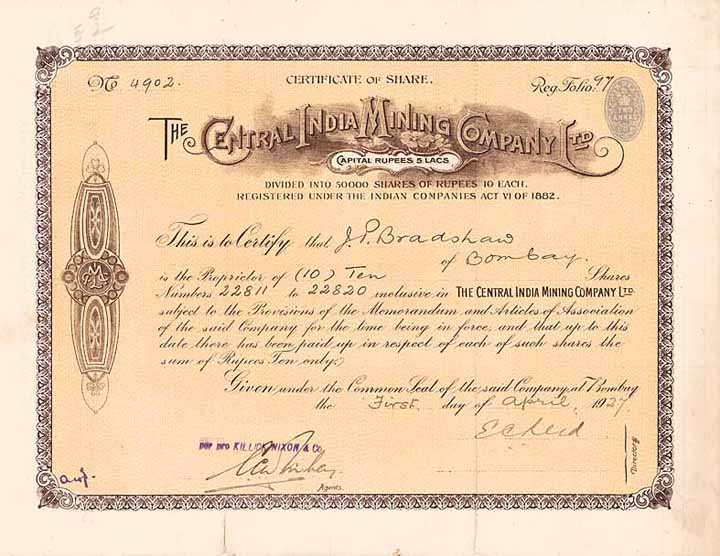 No 4902.
CERTIFICATE OF SHARE.
Reg. Folio. 97
THE CENTRAL INDIA MINING COMPANY LTD
CAPITAL RUPEES 5 LACS
DIVIDED INTO 50000 SHARES OF RUPEES 10 EACH.
REGISTERED UNDER THE INDIAN COMPANIES ACT VI OF 1882.
This is to Certify that J.P. Bradshaw
of Bombay.
is the Proprietor of (10) Ten Shares
Numbers 22811 to 22820 inclusive in THE CENTRAL INDIA MINING COMPANY LTD.
subject to the Provisions of the Memorandum and Articles of Association
of the said Company for the time being in force, and that up to this
date there has been paid up in respect of each of such shares the
sum of Rupees Ten only.
Given under the Common Seal of the said Company, at Bombay
the First day of April, 1927.
per pro KILLICK NIXON & Co.
Agents.
Directors